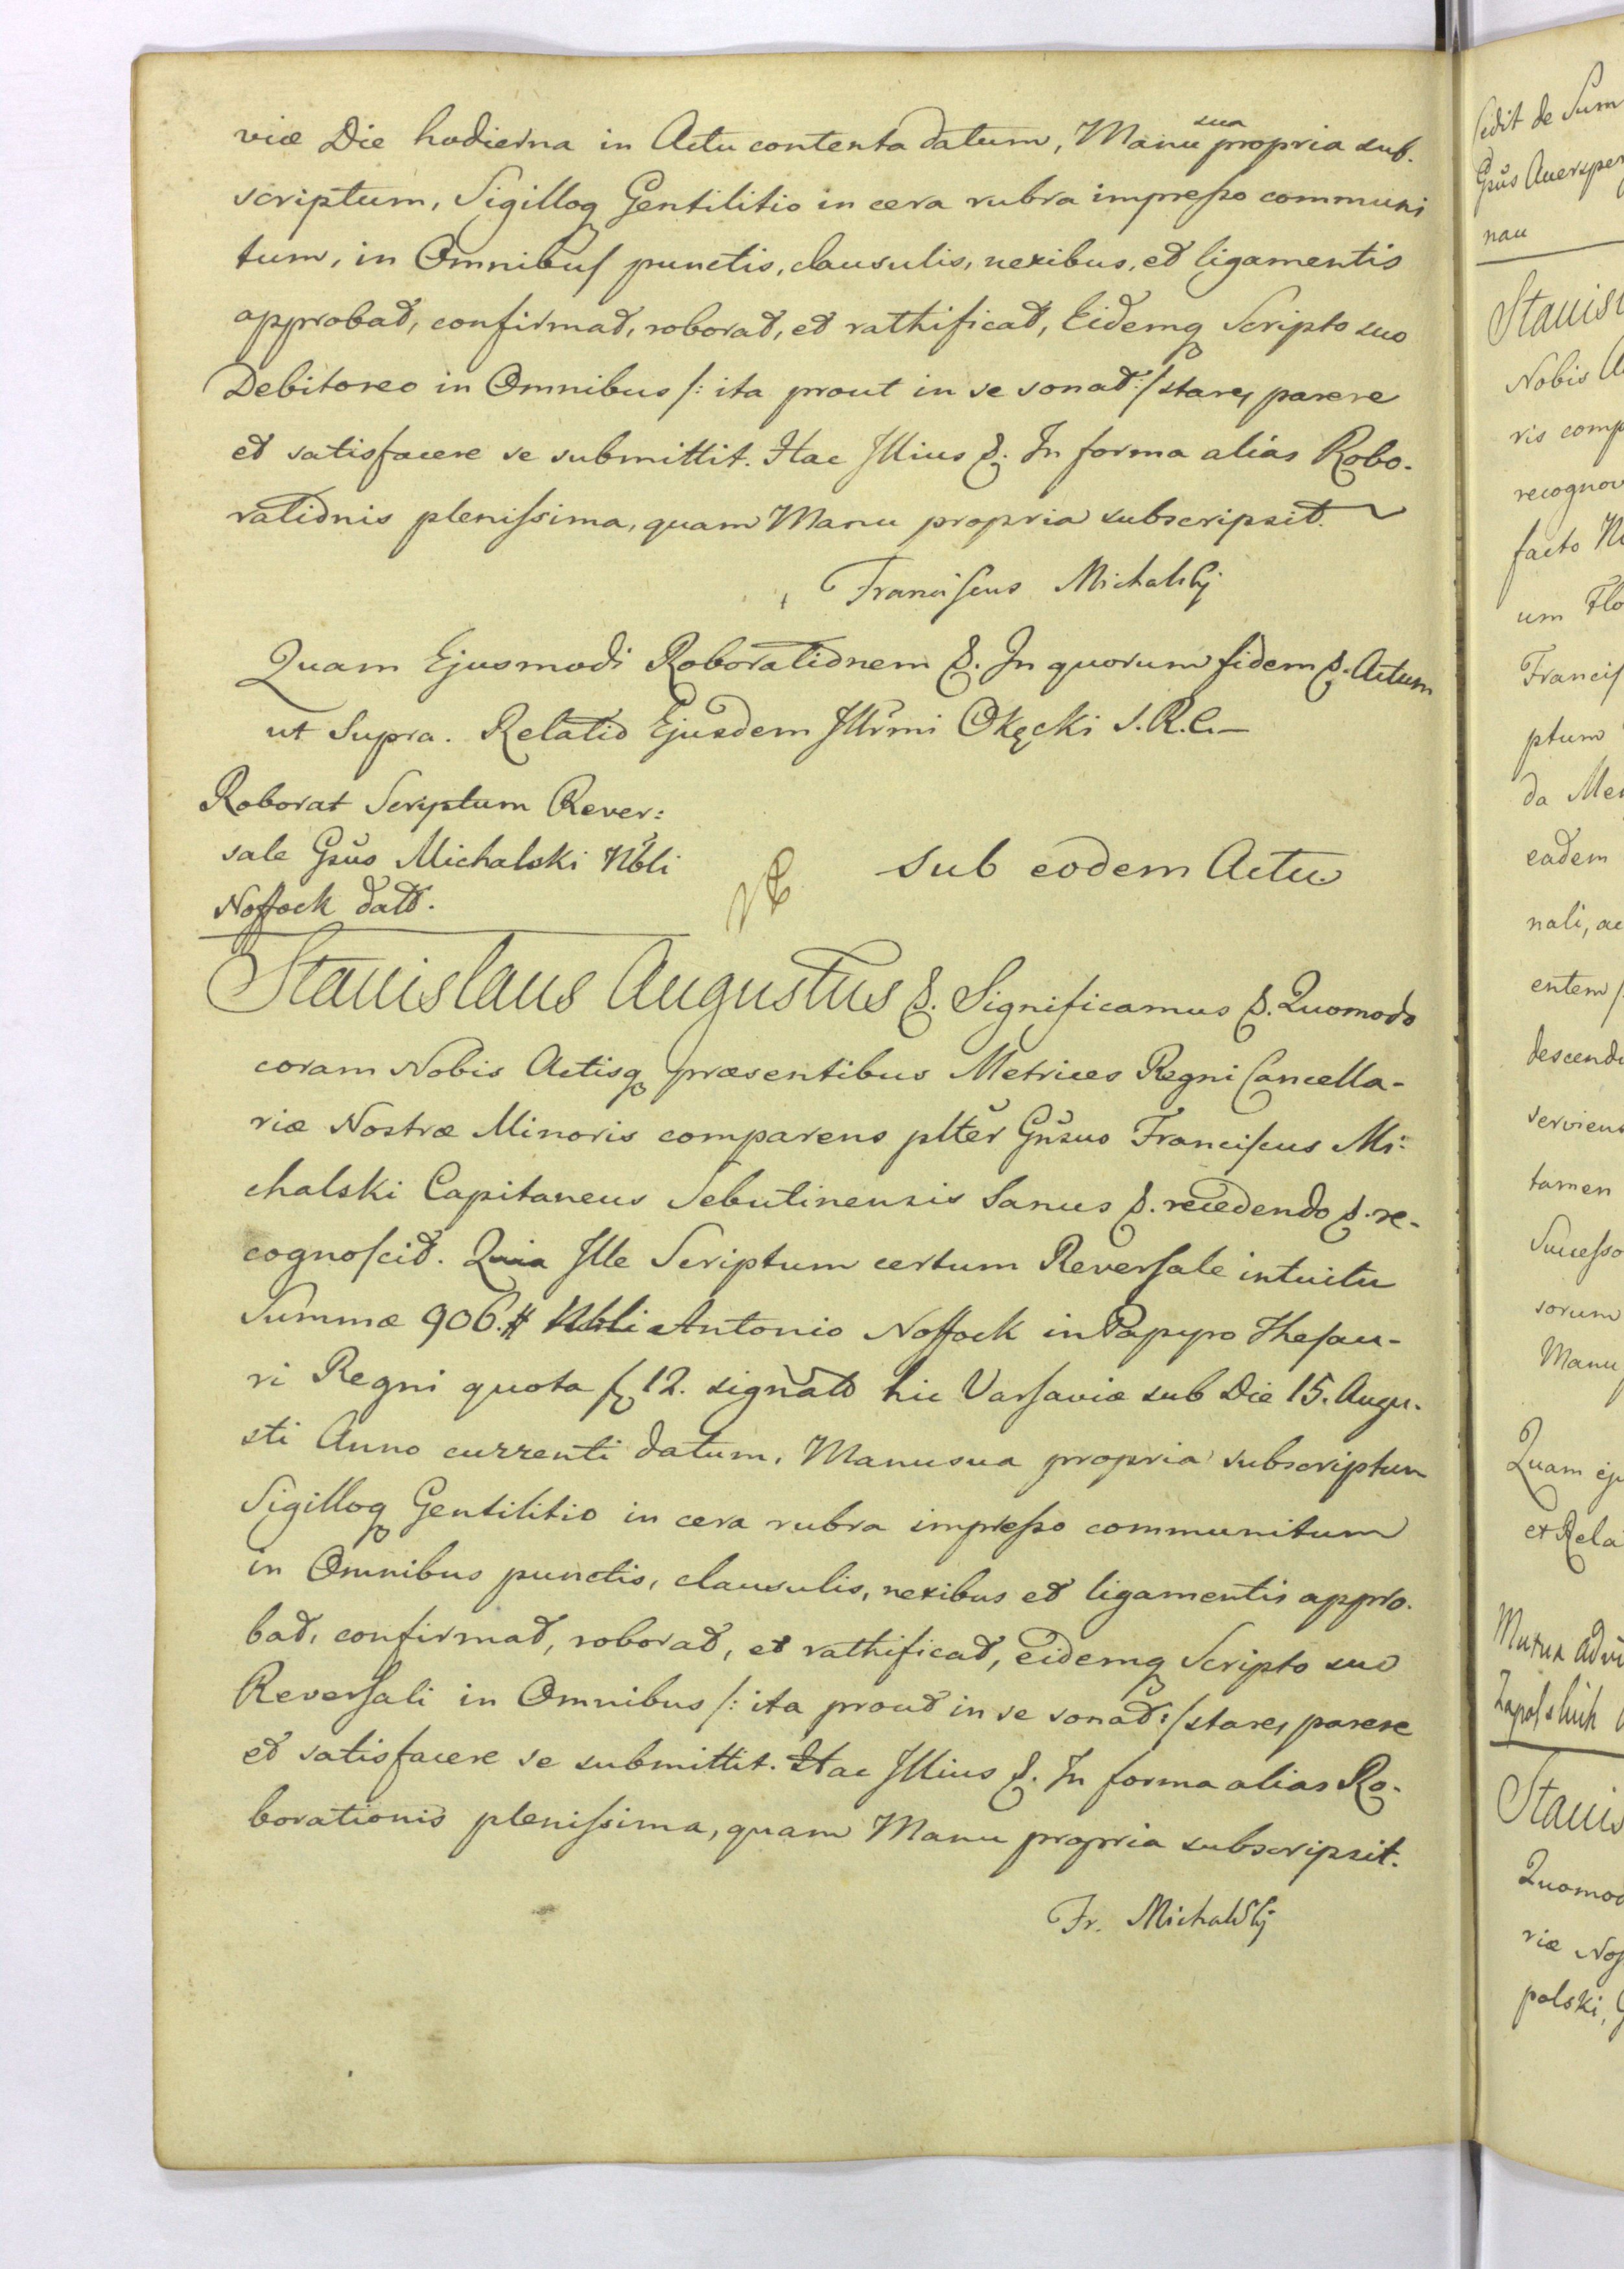 viæ Die hodierna in Actu contenta datum, Manu sua propria sub-
scriptum, Sigilloq Gentilitio in cera rubra impresso communi
tum, in Omnibus punctis, clausulis, nexibus, et ligamentis
approbat, confirmat, roborat, et rathificat, Eidemq Scripto suo
Debitoreo in Omnibus /: ita prout in se sonat :/ stare, parere
et satisfacere se submittit. Hac Illius &. In forma alias Robo-
rationis plenissima, quam Manu propria subscripsit.
Franciscus Michalskj
Quam Ejusmodi Roborationem &. In quorum fidem &. Actum
ut Supra. Relatio Ejusdem Illrmi Okęcki S.R.C.
Roborat Scriptum Rever:
sale Gsus Michalski Nbli
Noffock datt.
sub eodem Actu
Stanislaus Augustus &. Significamus &. Quomodo
coram Nobis Actisq præsentibus Metrices Regni Cancella-
riæ Nostræ Minoris comparens plter Gnsus Franciscus Mi-
chalski Capitaneus Sebutinensis Sanus &. recedendo &. re-
cognoscit. Quia Ille Scriptum certum Reversale intuitu
Summæ 906.# Nbli Antonio Noffock in Papyro Thesau-
ri Regni quota 12. signato hic Varsaviæ sub Die 15. Augu-
sti Anno currenti datum, Manu sua propria subscriptum
Sigilloq Gentilitio in cera rubra impresso communitum
in Omnibus punctis, clausulis, nexibus et ligamentis appro-
bat, confirmat, roborat, et rathificat, eidemq Scripto suo
Reversali in Omnibus /: ita prout in se sonat :/ stare, parere
et satisfacere se submittit. Hac Illius &. In forma alias Ro-
borationis plenissima, quam Manu propria subscripsit.
Fr. Michalskj
sedit de Sum
Gsus Auersper
nau
Stanisl
Nobis A
ris comp
recognov
facto N
um Flo
Francis
ptum
da Me
eadem
nali, ac
entem
descend
servient
tamen
Successo
sorum
Manu
Quam ej
et Rela
Mutua advi
Stanis
Quomod
riæ Nos
polski,